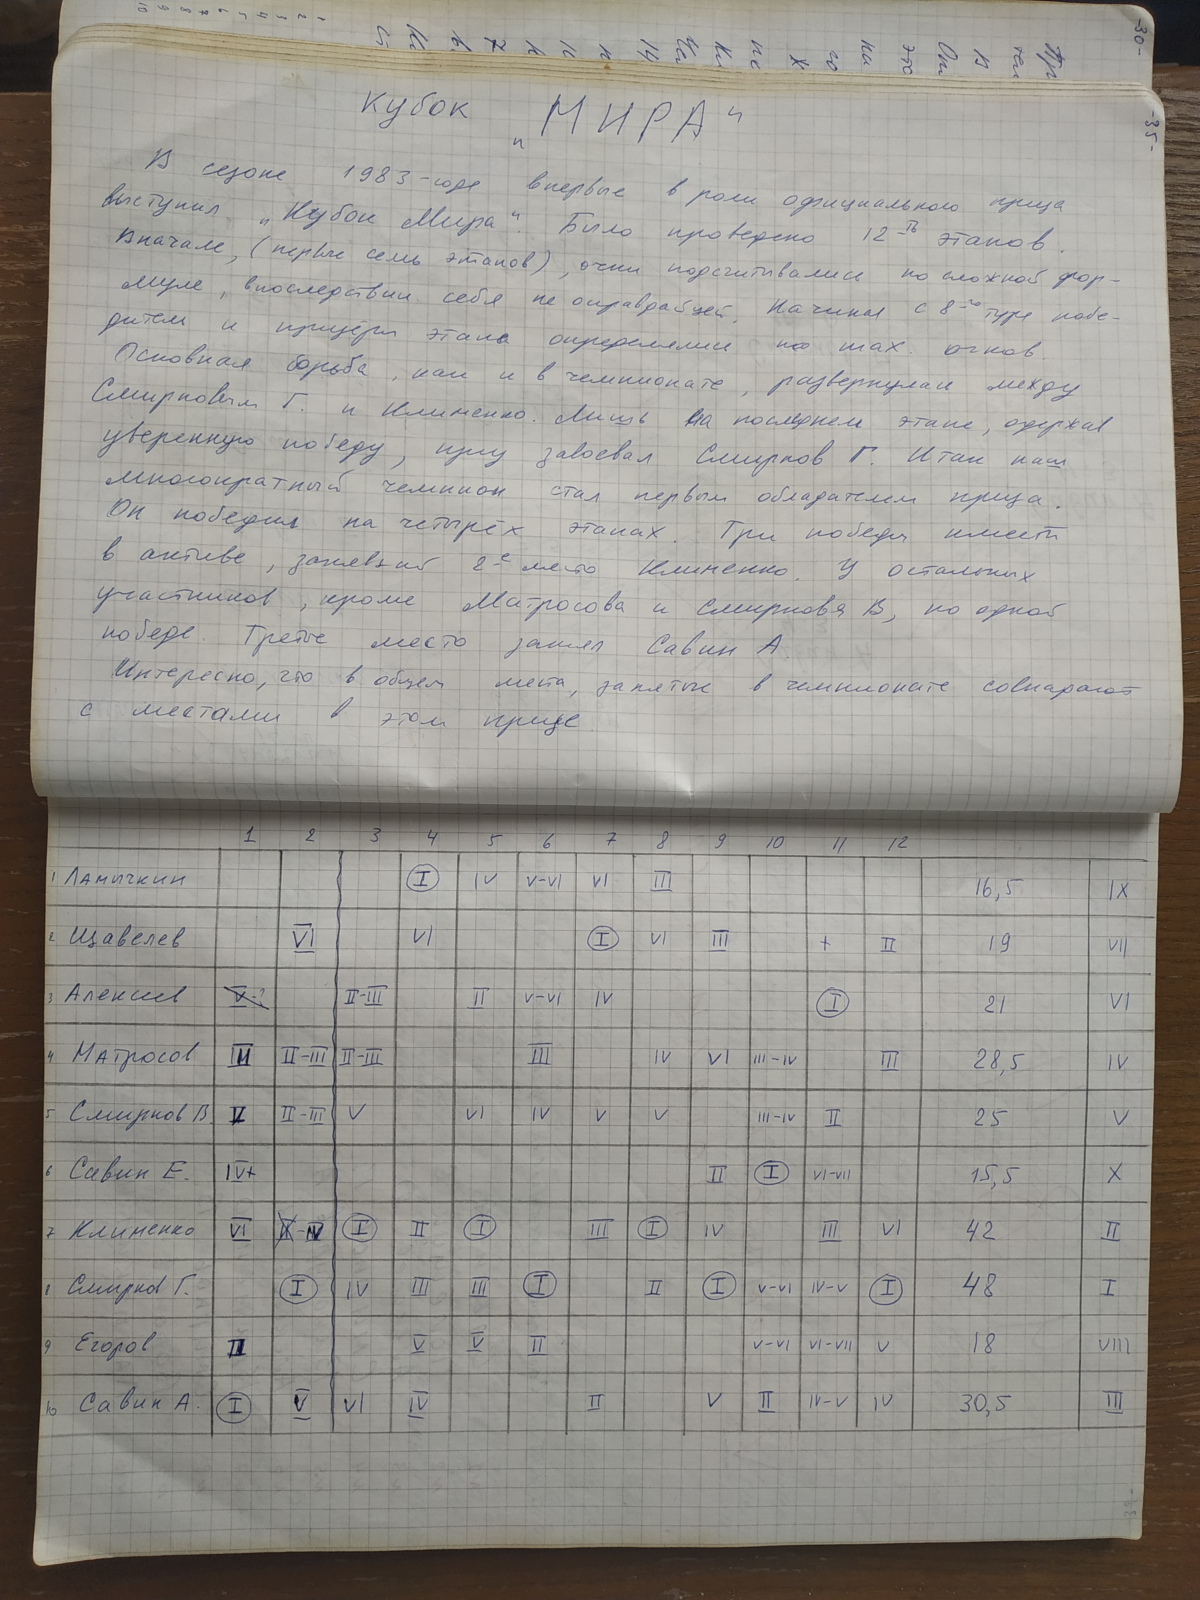 -30-
-35-
Кубок „МИРА"
В сезоне 1983-годе впервые в роли официального приза
выступил „Кубок Мира". Было проведено 12-ть этапов.
Вначале, (первые семь этапов), очки подсчитывались по сложной фор-
муле, впоследствии себя не оправдавшей. Начиная с 8-го тура побе-
дители и призёры этапа определялись по мах. очков.
Основная борьба, как и в чемпионате, развернулась между
Смирновым Г. и Клименко. Лишь на последнем этапе, одержав
уверенную победу, приз завоевал Смирнов Г. Итак наш
многократный чемпион стал первым обладателем приза.
Он победил на четырёх этапах. Три победы имеет
в активе, занявший 2-е место Клименко. У остальных
участников, кроме Матросова и Смирнова В, по одной
победе. Третье место занял Савин А.
Интересно, что в общем места, занятые в чемпионате совпадают
с местами в этом призе
1 2 3 4 5 6 7 8 9 10 11 12
1 Ламычкин I IV V-VI VI III 16,5 IX
2 Щавелев VI VI I VI III + II 19 VII
3 Алексеев V-? II-III II V-VI IV I 21 VI
4 Матросов III II-III II-III III IV VI III-IV III 28,5 IV
5 Смирнов В. V II-III V VI IV V V III-IV II 25 V
6 Савин Е. IV+ II I VI-VII 15,5 X
7 Клименко VI IV I II I III I IV III VI 42 II
8 Смирнов Г. I IV III III I II I V-VI IV-V I 48 I
9 Егоров II V V II V-VI VI-VII V 18 VIII
10 Савин А. I V VI IV II V II IV-V IV 30,5 III